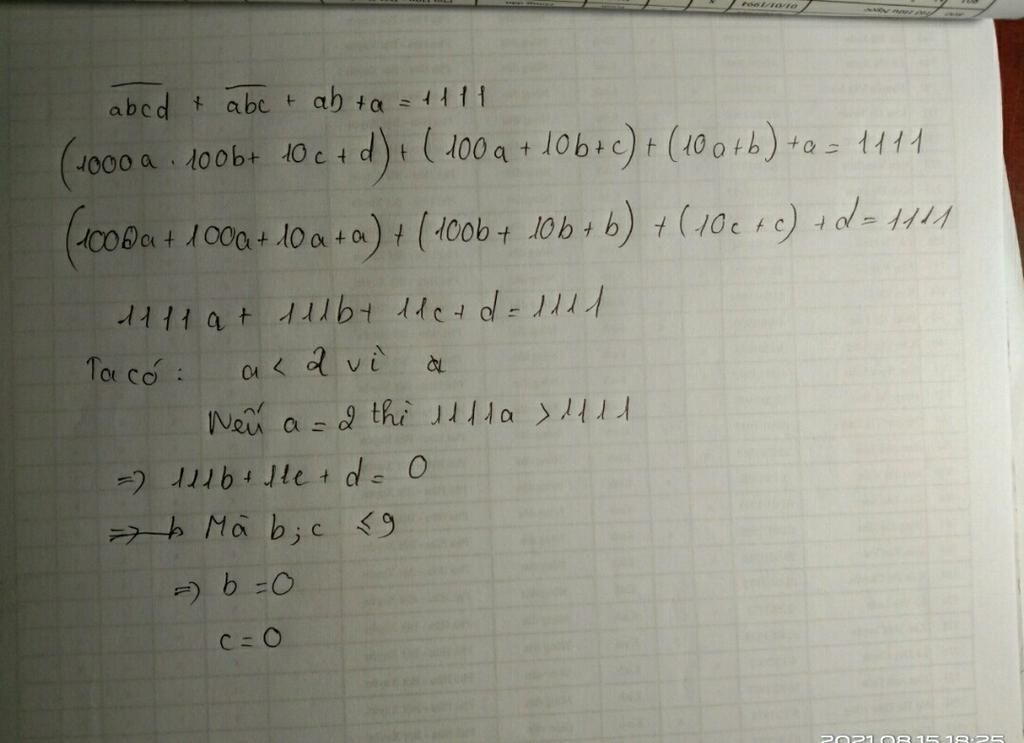 abcd + abc + ab + a = 1111
(1000a . 100b + 10c + d) + (100a + 10b + c) + (10a + b) + a = 1111
(1000a + 100a + 10a + a) + (100b + 10b + b) + (10c + c) + d = 1111
1111a + 111b + 11c + d = 1111
Ta có : a < 2 vì
Nếu a = 2 thì 1111a > 1111
=> 111b + 11c + d = 0
=> b Mà b ; c ≤ 9
=> b = 0
c = 0
2021.08.15 18:25